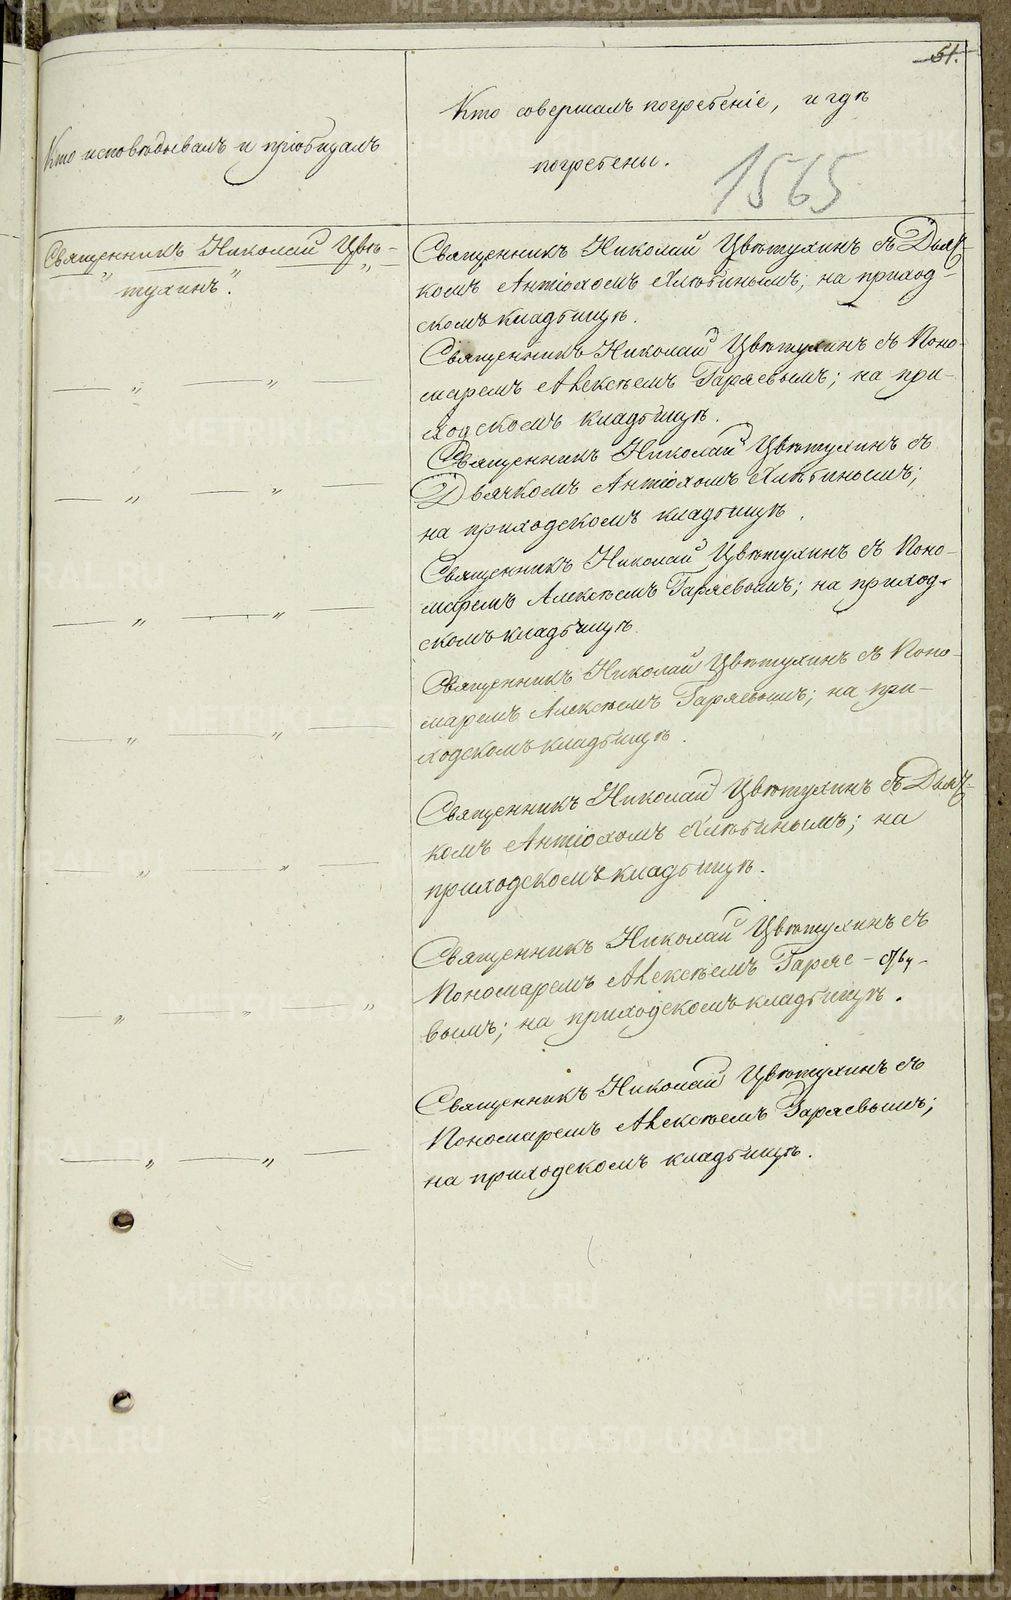 51.
Кто исповѣдывалъ и пріобщалъ
Кто совершалъ погребеніе, и гдѣ
погребены.
1565
Священникъ Николай Цвѣ-
тухинъ.
Священникъ Николай Цвѣтухинъ съ Дьяч-
комъ Антіохомъ Хлѣбинымъ; на приход-
скомъ кладбищѣ.
— „ — „ —
Священникъ Николай Цвѣтухинъ съ Поно-
маремъ Алексѣемъ Гаряевымъ; на при-
ходскомъ кладбищѣ.
— „ — „ —
Священникъ Николай Цвѣтухинъ съ
Дьячкомъ Антіохомъ Хлѣбинымъ;
на приходскомъ кладбищѣ.
— „ — „ —
Священникъ Николай Цвѣтухинъ съ Поно-
маремъ Алексѣемъ Гаряевымъ; на приход-
скомъ кладбищѣ.
— „ — „ —
Священникъ Николай Цвѣтухинъ съ Поно-
маремъ Алексѣемъ Гаряевымъ; на при-
ходскомъ кладбищѣ.
— „ — „ —
Священникъ Николай Цвѣтухинъ съ Дьяч-
комъ Антіохомъ Хлѣбинымъ; на
приходскомъ кладбищѣ.
— „ — „ — „
Священникъ Николай Цвѣтухинъ съ
Пономаремъ Алексѣемъ Гаряе-
вымъ; на приходскомъ кладбищѣ.
— „ — „ —
Священникъ Николай Цвѣтухинъ съ
Пономаремъ Алексѣемъ Гаряевымъ;
на приходскомъ кладбищѣ.
METRIKI.GASO-URAL.RU